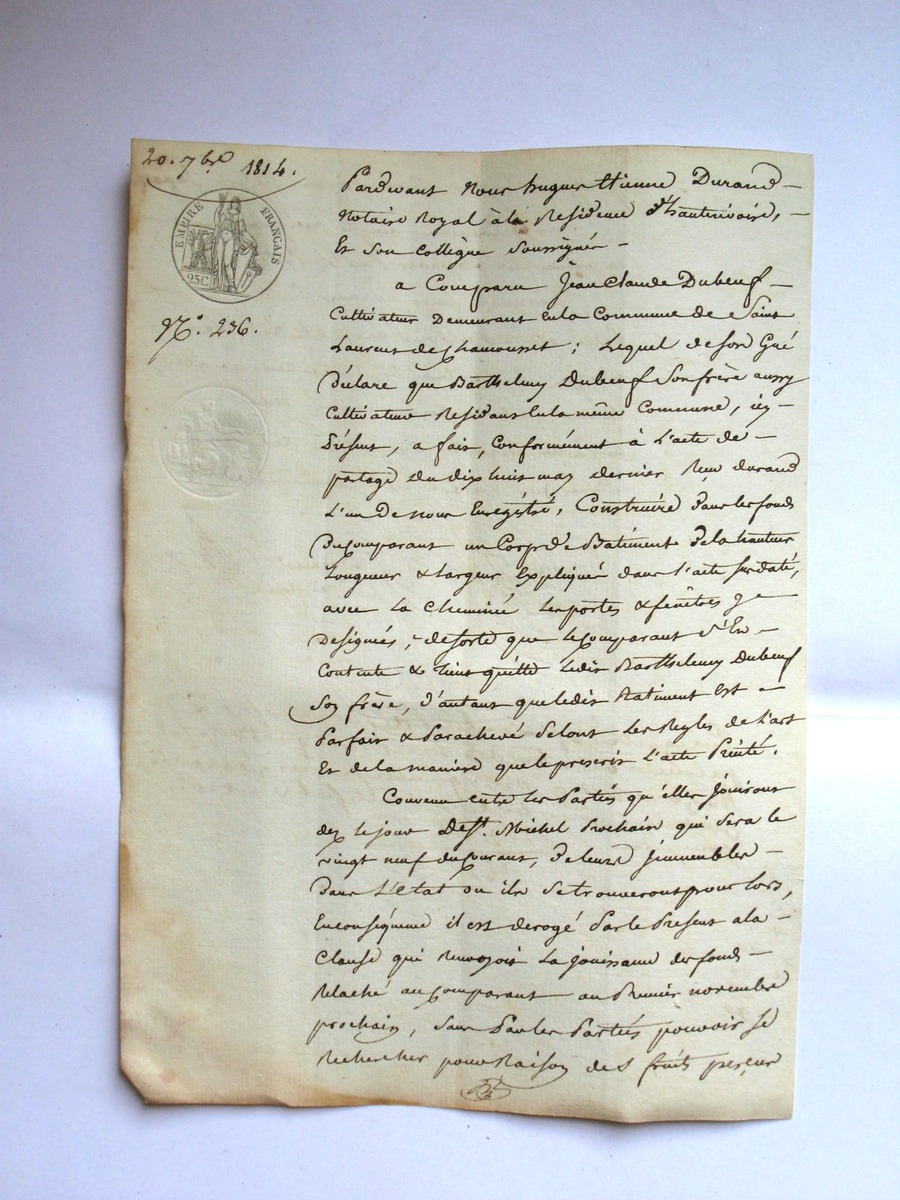 20. 7bre 1814.
EMPIRE FRANÇAIS
25C.
N.º 236.
Pardevant Nous hugues Etienne Durand —
Notaire Royal à la Residence d'hauterivoire, —
Et son collègue soussignés —
a Comparu Jean Claude Dubeuf —
Cultivateur Demeurant en la Commune de Saint
Laurent de Chamousset ; Lequel de son Gré
Déclare que Barthelemy Dubeuf son frère aussy
Cultivateur Residant en la même Commune, icy
Présent, a fait, conformément à l'acte de —
partage du dix huit may dernier Reçu durand
L'un De nous Enrégistré, Construire Dans les fonds
Du Comparant un Corps de Batiment De la hauteur
Longueur & Largeur Expliqués dans l'acte sus daté,
avec La Cheminée Les portes & fenêtres y —
Designés ; de sorte que le comparant s'En —
Contente & tient quitte Ledit Barthelemy Dubeuf
Son frère, D'autant que ledit Batiment est —
Parfait & Parachevé selont Les Regles de l'art
Et de la maniere que le prescrit L'acte Précité.
Convenu entre les Parties qu'elles Jouiront
dez le jour De St. Michel Prochain qui sera le
vingt neuf du Courant, De leurs Jmmeubles —
Dans L'état ou ils se trouveront pour lors,
En conséquence il est derogé Par le Present a la —
Clause qui Renvoyoit La jouissance des fonds —
Relaché au Comparant au Premier novembre
prochain, Sans Par les Parties pouvoir se
Rechercher pour Raison des fruits perçus